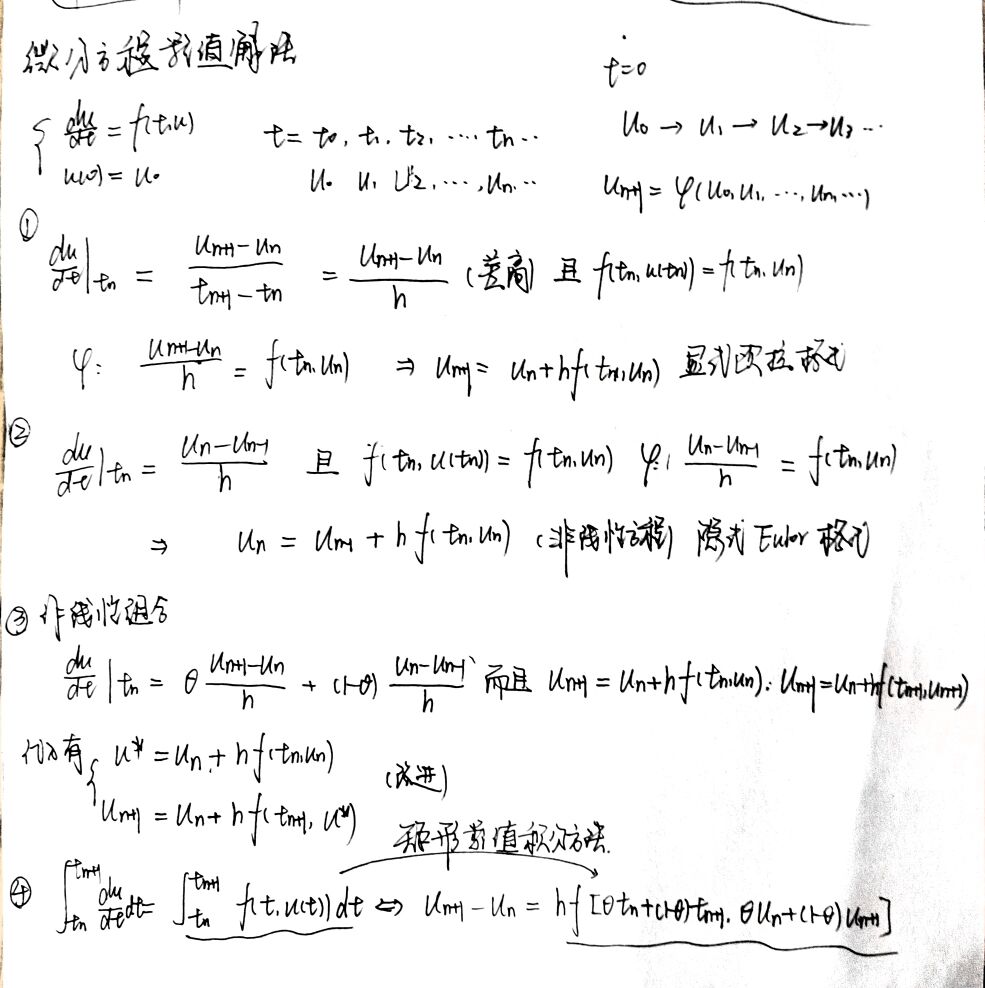 微分方程数值解法
t=0
{ du/dt = f(t,u)   t = t₀, t₁, t₂, ⋯ tₙ ⋯   u₀ → u₁ → u₂ → u₃ ⋯
u(0) = u₀   u₀ u₁ u₂, ⋯, uₙ ⋯   uₙ₊₁ = φ(u₀, u₁, ⋯, uₙ, ⋯)
① du/dt|tₙ = (uₙ₊₁ - uₙ)/(tₙ₊₁ - tₙ) = (uₙ₊₁ - uₙ)/h (差商) 且 f(tₙ, u(tₙ)) = f(tₙ, uₙ)
φ: (uₙ₊₁ - uₙ)/h = f(tₙ, uₙ) ⇒ uₙ₊₁ = uₙ + hf(tₙ, uₙ) 显式欧拉格式
② du/dt|tₙ = (uₙ - uₙ₋₁)/h 且 f(tₙ, u(tₙ)) = f(tₙ, uₙ) φ: (uₙ - uₙ₋₁)/h = f(tₙ, uₙ)
⇒ uₙ = uₙ₋₁ + h f(tₙ, uₙ) (非线性方程) 隐式 Euler 格式
③ 作线性组合
du/dt|tₙ = θ (uₙ₊₁ - uₙ)/h + (1-θ) (uₙ - uₙ₋₁)/h 而且 uₙ₊₁ = uₙ + h f(tₙ, uₙ). uₙ₊₁ = uₙ + hf(tₙ₊₁, uₙ₊₁)
代入有 { u* = uₙ + h f(tₙ, uₙ)
uₙ₊₁ = uₙ + h f(tₙ₊₁, u*) (改进)
矩形数值积分方法.
④ ∫_{tₙ}^{tₙ₊₁} du/dt dt = ∫_{tₙ}^{tₙ₊₁} f(t, u(t)) dt ⇔ uₙ₊₁ - uₙ = hf [θtₙ + (1-θ)tₙ₊₁, θuₙ + (1-θ)uₙ₊₁]